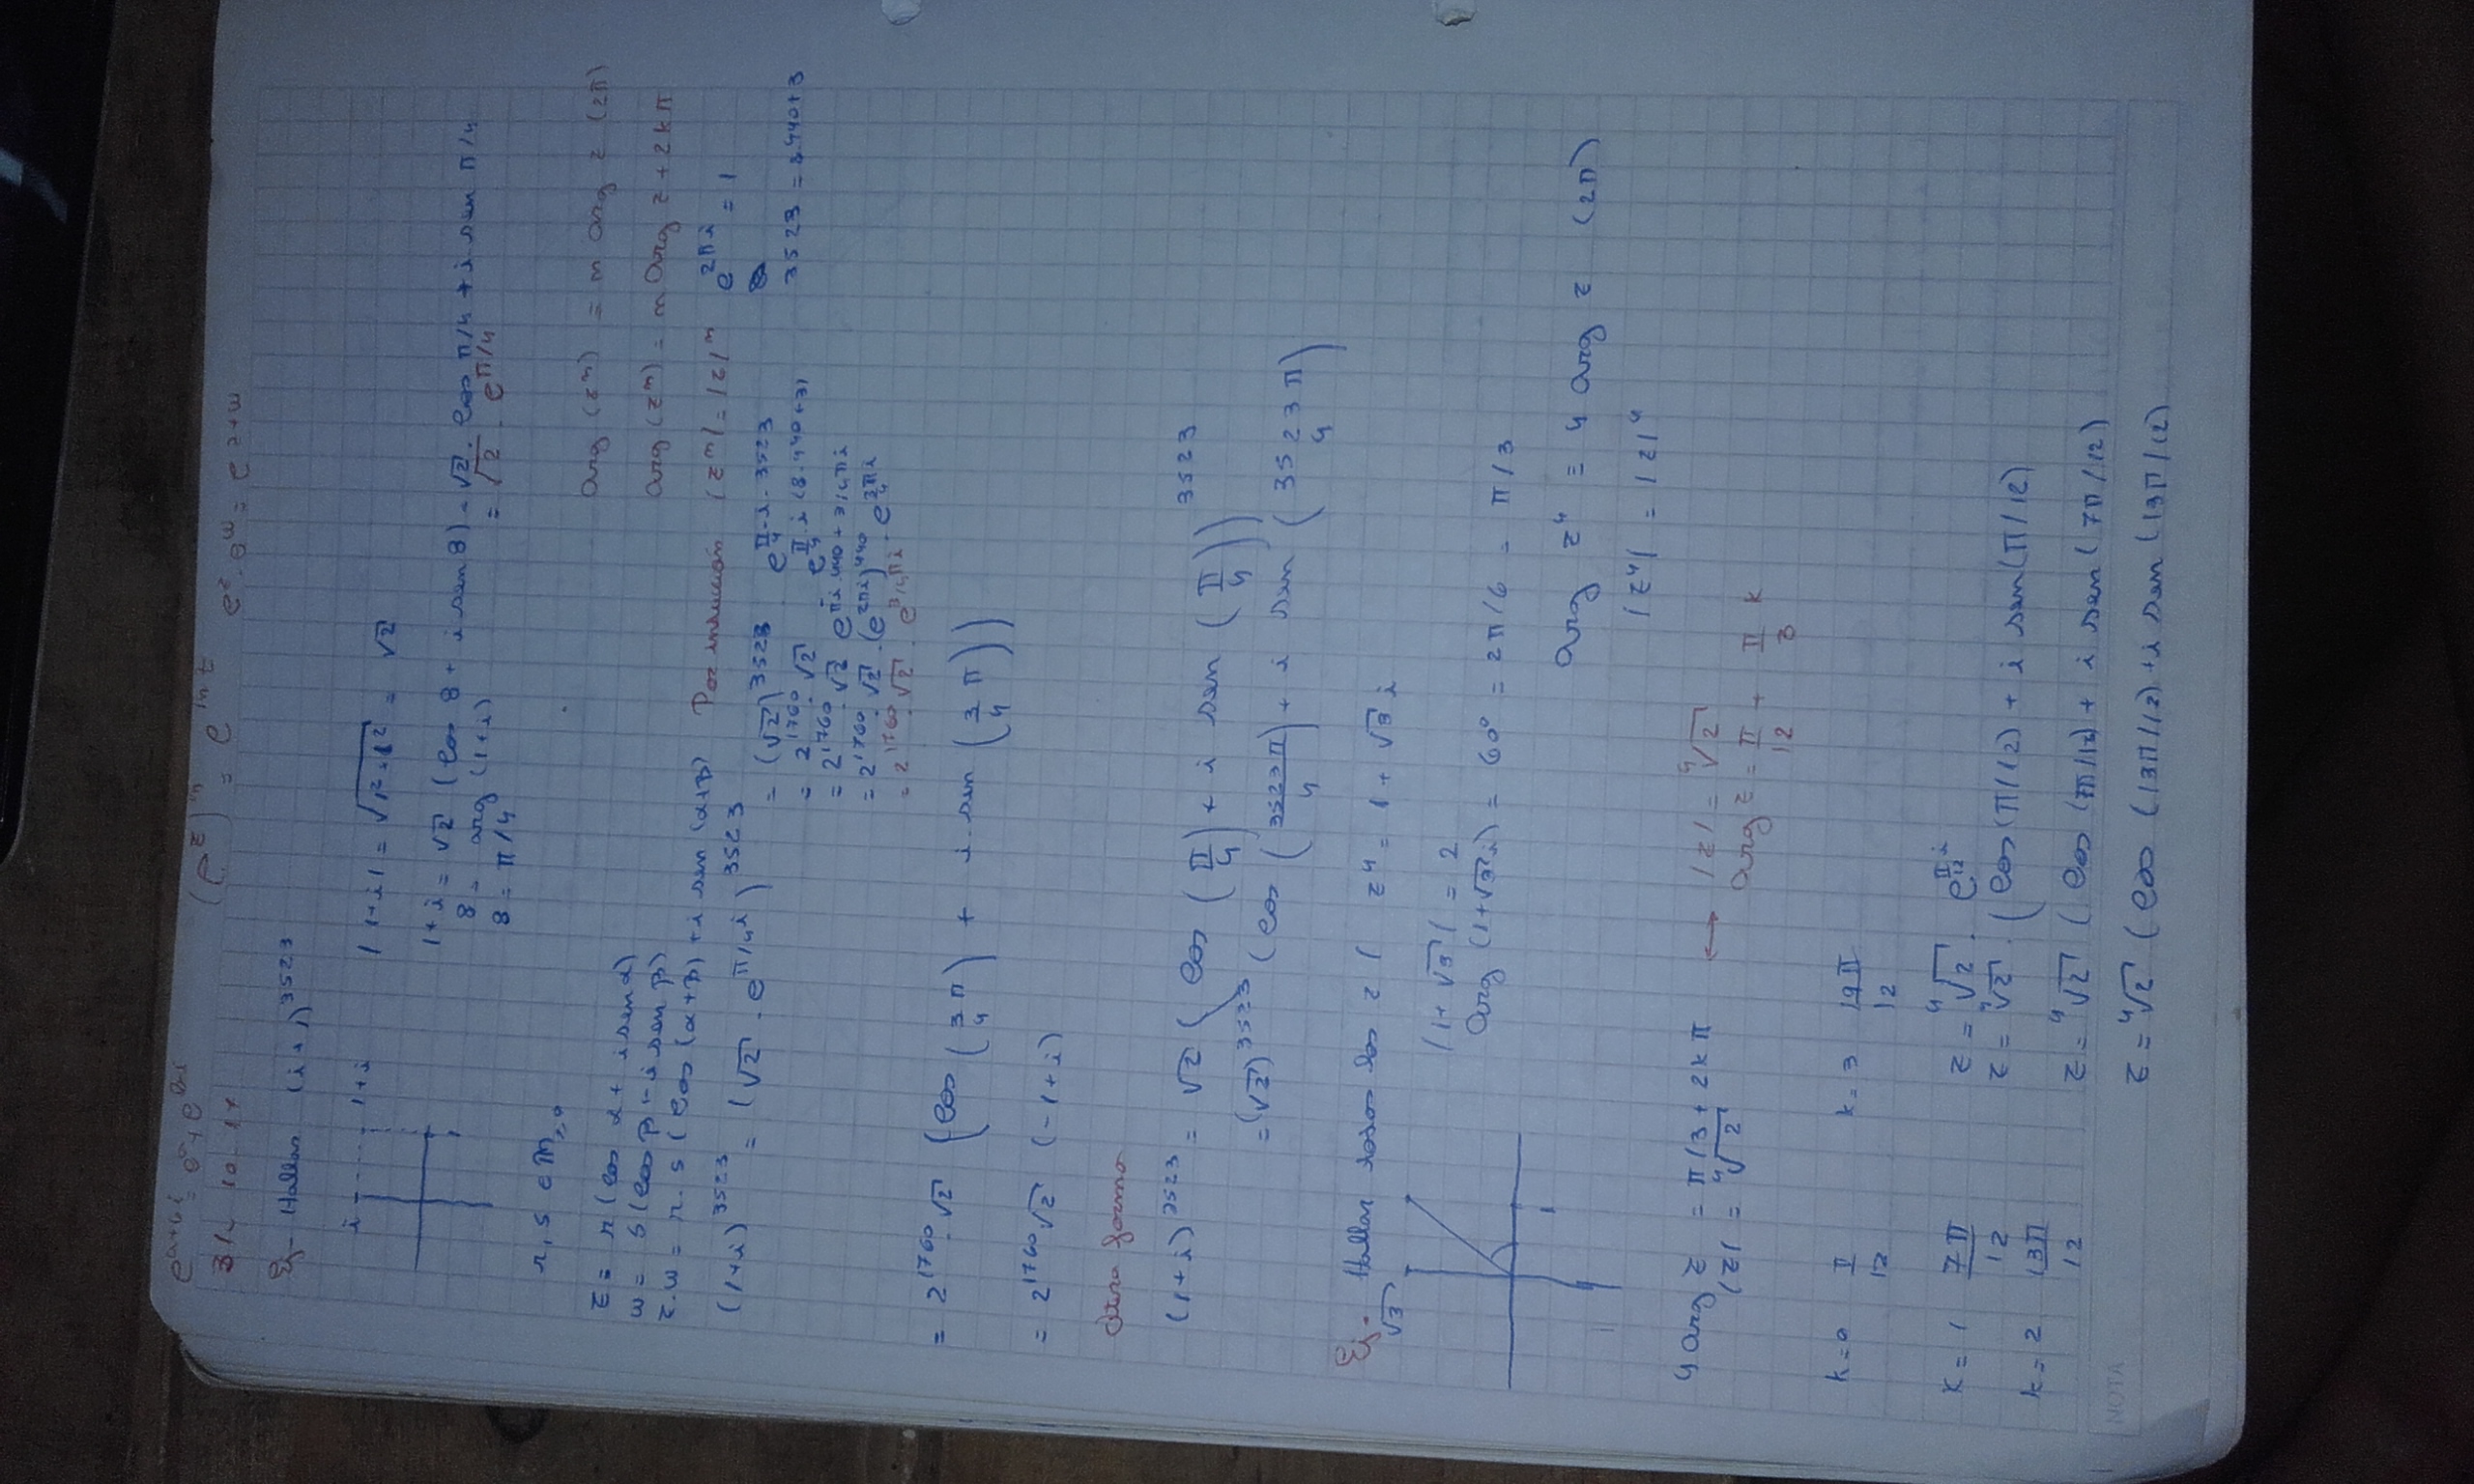 e^{a+bi} = e^a + e^{bi}   (e^z)^n = e^{nz}   e^z . e^w = e^{z+w}
31- 10- 17
Ej- Hallar (i+1)^{3523}
i   1+i   |1+i| = √(1²+1²) = √2
1
1+i = √2 (cos 8 + i sen 8) = √2 . cos π/4 + i sen π/4
8 = arg (1+i)   = √2 . e^{π/4}
8 = π/4
r, s ∈ ℝ≥0
arg (z^n) = n arg z (2π)
z = r (cos α + i sen α)
w = s (cos β + i sen β)   arg (z^n) = n arg z + 2kπ
z.w = r.s (cos (α+β) + i sen (α+β)   Por inducción |z^n| = |z|^n   e^{2πi} = 1
(1+i)^{3523} = (√2 . e^{π/4 i})^{3523} = (√2)^{3523} e^{π/4 . i . 3523}
3523 = 8.440+3
= 2^{1760} . √2 . e^{π/4 . i (8.440+3)}
= 2^{1760} . √2 e^{πi 440 + 3/4 πi}
= 2^{1760} . √2 . (e^{2πi})^{440} . e^{3/4 πi}
= 2^{1760} . √2 . e^{3/4 πi}
= 2^{1760} . √2 (cos (3/4 π) + i . sen (3/4 π))
= 2^{1760} √2 (-1+i)
Otra forma
(1+i)^{3523} = √2 (cos (π/4) + i sen (π/4))^{3523}
= (√2)^{3523} (cos (3523π/4) + i sen (3523π/4)
Ej- Hallar todos los z / z^4 = 1 + √3 i
√3
1
|1+√3| = 2
arg (1+√3 i) = 60° = 2π/6 = π/3
arg z^4 ≡ 4 arg z (2π)
|z^4| = |z|^4
4 arg z = π/3 + 2kπ ↔ |z| = ⁴√2
|z| = ⁴√2   arg z = π/12 + π/3 k
k=0 π/12   k=3 19π/12
k=1 7π/12   z = ⁴√2 . e^{π/12 i}
z = ⁴√2 . (cos (π/12) + i sen (π/12)
k=2 13π/12
z = ⁴√2 (cos (7π/12) + i sen (7π/12)
NOTA
z = ⁴√2 (cos (13π/12) + i sen (13π/12)